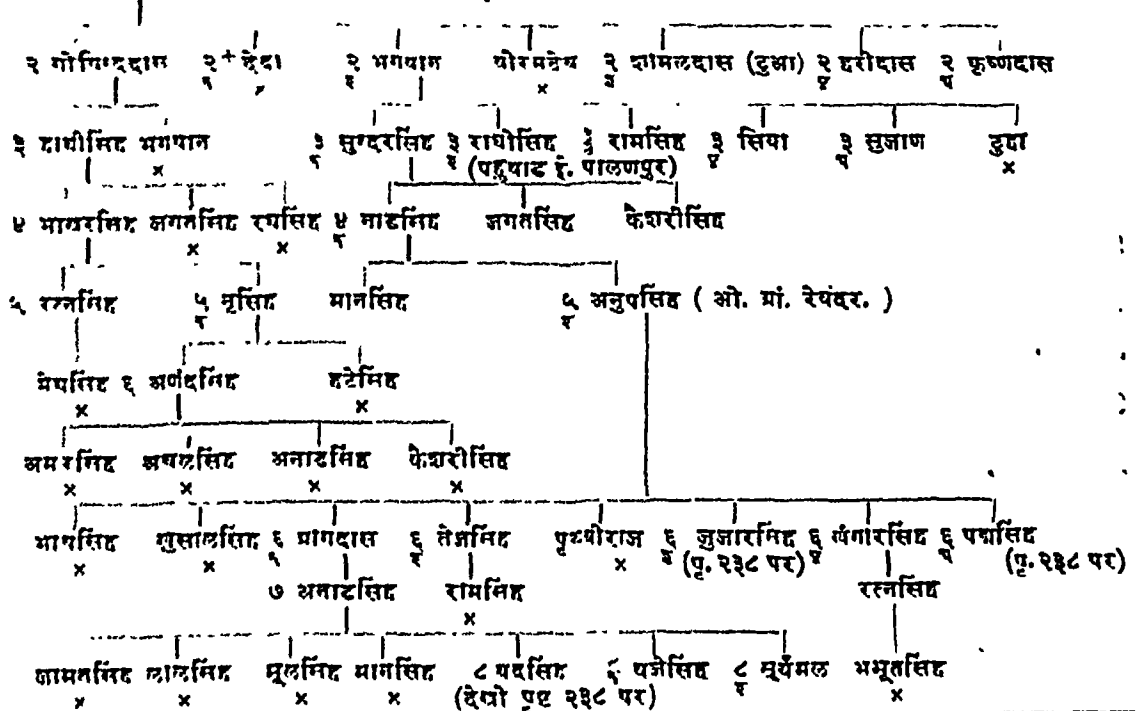 २ गोविन्ददास २/१ + देदा २/२ भगवान वीरमदेव २/३ शामलदास (दुआ) २/४ हरीदास २/५ कृष्णदास
×
३ हाथीसिंह भगवान ३/१ सुन्दरसिंह ३/२ राघोसिंह ३/३ रामसिंह ३/४ सिवा ३/५ सुजाण दुदा
× (पहुवाद इ. पालणपुर) ×
४ भाखरसिंह जगतसिंह रूपसिंह ४/१ नाहसिंह जगतसिंह केशरीसिंह
× ×
५ रत्नसिंह ५/१ नृसिंह मानसिंह ५/२ अनुपसिंह ( ओ. प्रां. रेवंदर. )
मेघसिंह ६ अणंदसिंह हटेसिंह
× ×
अमरसिंह अचलसिंह अनाडसिंह केशरीसिंह
× × × ×
भावसिंह खुसालसिंह ६/१ प्रागदास ६/२ तेजसिंह पृथ्वीराज ६/३ जुजारसिंह ६/४ खंगारसिंह ६/५ पद्मसिंह
× × × (पृ. २३८ पर) (पृ. २३८ पर)
७ अनाडसिंह रामसिंह रत्नसिंह
×
जामतसिंह लालसिंह मूलसिंह मानसिंह ८ पदसिंह वजेसिंह ८/२ सूर्यमल भभूतसिंह
× × × × (देखो पृष्ट २३८ पर) ×